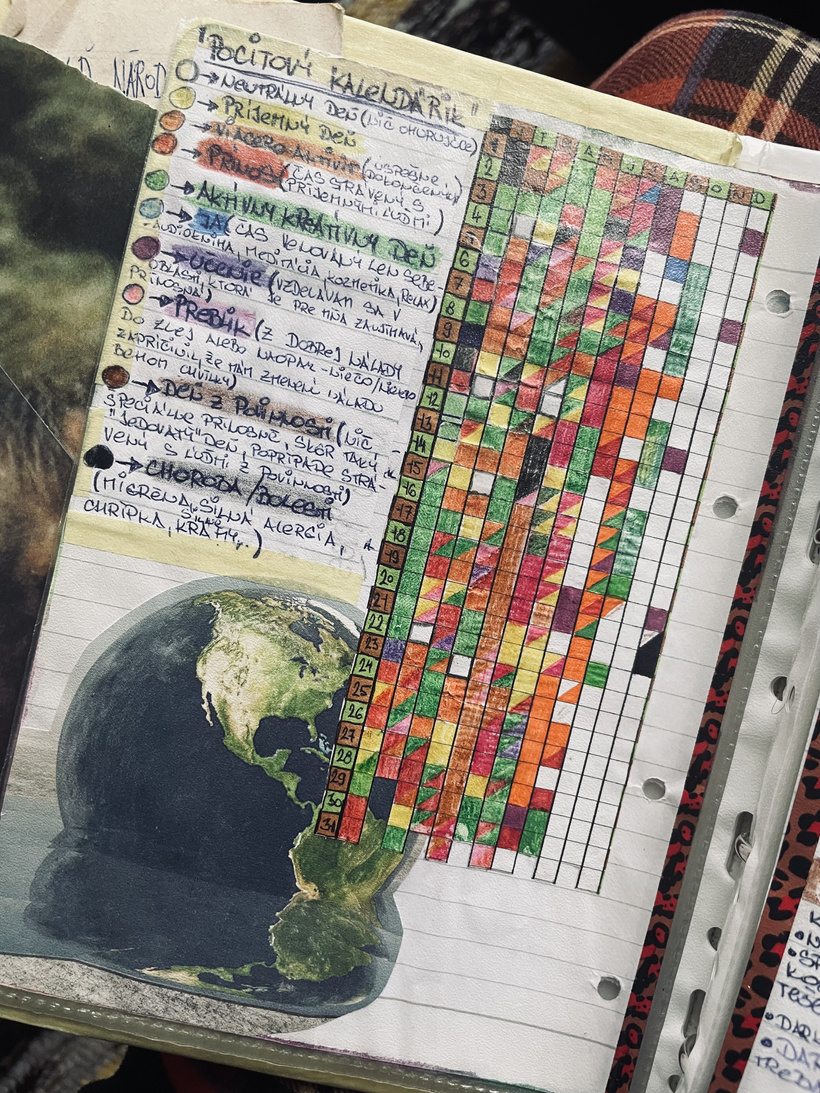 NÁROD
"POCITOVÝ KALENDÁRIK"
→ NEUTRÁLNY DEŇ (NIČ OHURUJÚCE)
→ PRÍJEMNÝ DEŇ
→ VIACERO AKTIVÍT (ÚSPEŠNE DOKONČENÝCH)
→ PRÍNOS (ČAS STRÁVENÝ S
PRÍJEMNÝMI ĽUĎMI)
→ AKTÍVNY KREATÍVNY DEŇ
→ JA (ČAS VENOVANÝ LEN SEBE -
AUDIOKNIHA, MEDITÁCIA, KOZMETIKA, RELAX)
→ UČENIE (VZDELÁVAM SA V
OBLASTI, KTORÁ JE PRE MŇA ZAUJÍMAVÁ,
PRÍNOSNÁ)
→ PREBLIK (Z DOBREJ NÁLADY
DO ZLEJ ALEBO NAOPAK - NIEČO/NIEKTO
ZAPRÍČINIL, ŽE MÁM ZMENENÚ NÁLADU
BEHOM CHVÍĽKY)
→ DEŇ Z POVINNOSTI (NIČ
ŠPECIÁLNE PRÍNOSNÉ, SKÔR TAKÝ
"JEDOVATÝ" DEŇ, POPRÍPADE STRÁ-
VENÝ S ĽUĎMI Z POVINNOSTI)
→ CHOROBA/BOLESTI
(MIGRÉNA, SILNÁ ALERGIA,
CHRÍPKA, SILNÉ KŔČE,..)
J F M A M J J A S O N D
1
2
3
4
5
6
7
8
9
10
11
12
13
14
15
16
17
18
19
20
21
22
23
24
25
26
27
28
29
30
31